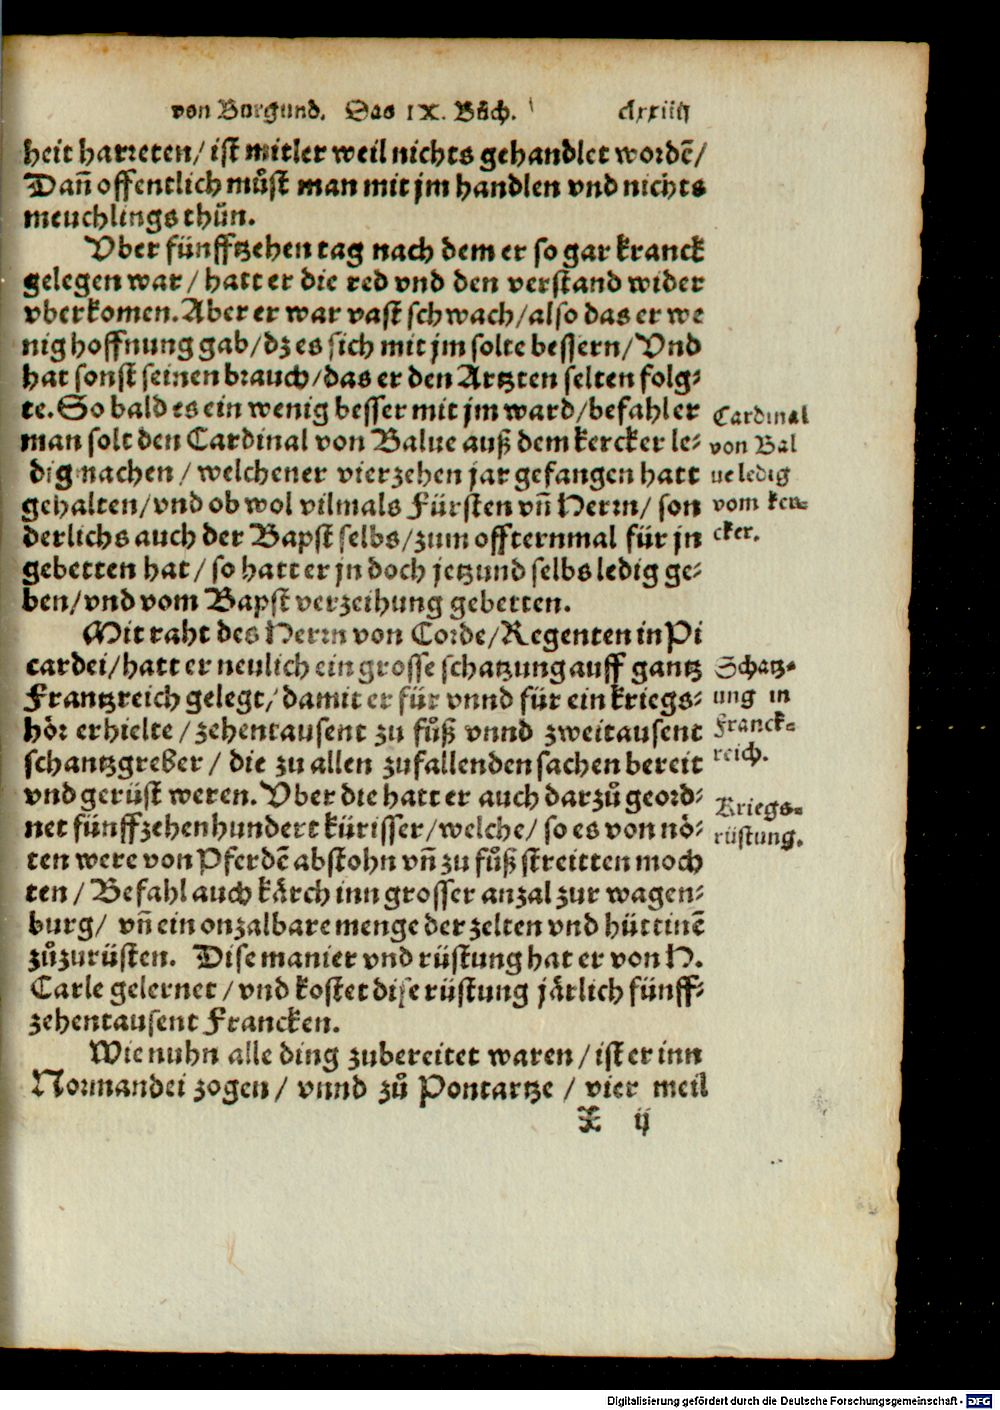 von Burgund. Das IX. Bůch. clxxiiij
heit harreten/ ist mitler weil nichts gehandlet wordē/
Dañ offentlich můst man mit jm handlen vnd nichts
meuchlings thůn.
Vber fünfftzehen tag nach dem er so gar kranck
gelegen war/ hatt er die red vnd den verstand wider
vberkomen. Aber er war vast schwach/ also das er we
nig hoffnung gab/ dz es sich mit jm solte bessern/ Vnd
hat sonst seinen brauch/ das er den Artzten selten folg⸗
te. So bald es ein wenig besser mit jm ward/ befahl er
man solt den Cardinal von Balue auß dem kercker le⸗
dig machen/ welchener vierzehen jar gefangen hatt
gehalten/ vnd ob wol vilmals Fürsten vñ Herrn/ son
derlichs auch der Bapst selbs/ zum offternmal für jn
gebetten hat/ so hatt er jn doch jetzund selbs ledig ge⸗
ben/ vnd vom Bapst verzeihung gebetten.
Cardinal
von Bal
ue ledig
vom ker⸗
cker.
Mit raht des Herrn von Corde/ Regenten in Pi
cardei/ hatt er neulich ein grosse schatzung auff gantz
Frantzreich gelegt/ damit er für vnnd für ein kriegs⸗
hör erhielte/ zehentausent zu fůß vnnd zweitausent
schantzgreber/ die zu allen zufallenden sachen bereit
vnd gerüst weren. Vber die hatt er auch darzů geord⸗
net fünffzehenhundert kürisser/ welche/ so es von nö⸗
ten were von Pferdē abstohn vñ zu fůß streitten moch
ten/ Befahl auch kärch inn grosser anzal zur wagen⸗
burg/ vñ ein onzalbare menge der zelten vnd hüttinē
zůzurüsten. Dise manier vnd rüstung hat er von H.
Carle gelernet/ vnd kostet dise rüstung järlich fünff⸗
zehentausent Francken.
Schatz⸗
ung in
Franck⸗
reich.
Kriegs⸗
rüstung.
Wie nuhn alle ding zubereitet waren/ ist er inn
Normandei zogen/ vnnd zů Pontartze/ vier meil
X ij
Digitalisierung gefördert durch die Deutsche Forschungsgemeinschaft - DFG